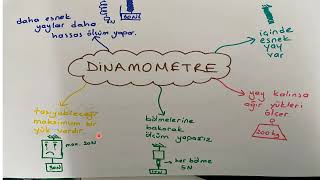 daha esnek
yaylar daha
hassas ölçüm yapar.
5N
50N
DİNAMOMETRE
içinde
esnek
yay
var
taşıyabileceği
maksimum bir
yük vardır.
max. 20N
30N
bölmelerine
bakarak
ölçüm yaparız
her bölme
5N
yay kalınsa
ağır yükleri
ölçer
200kg